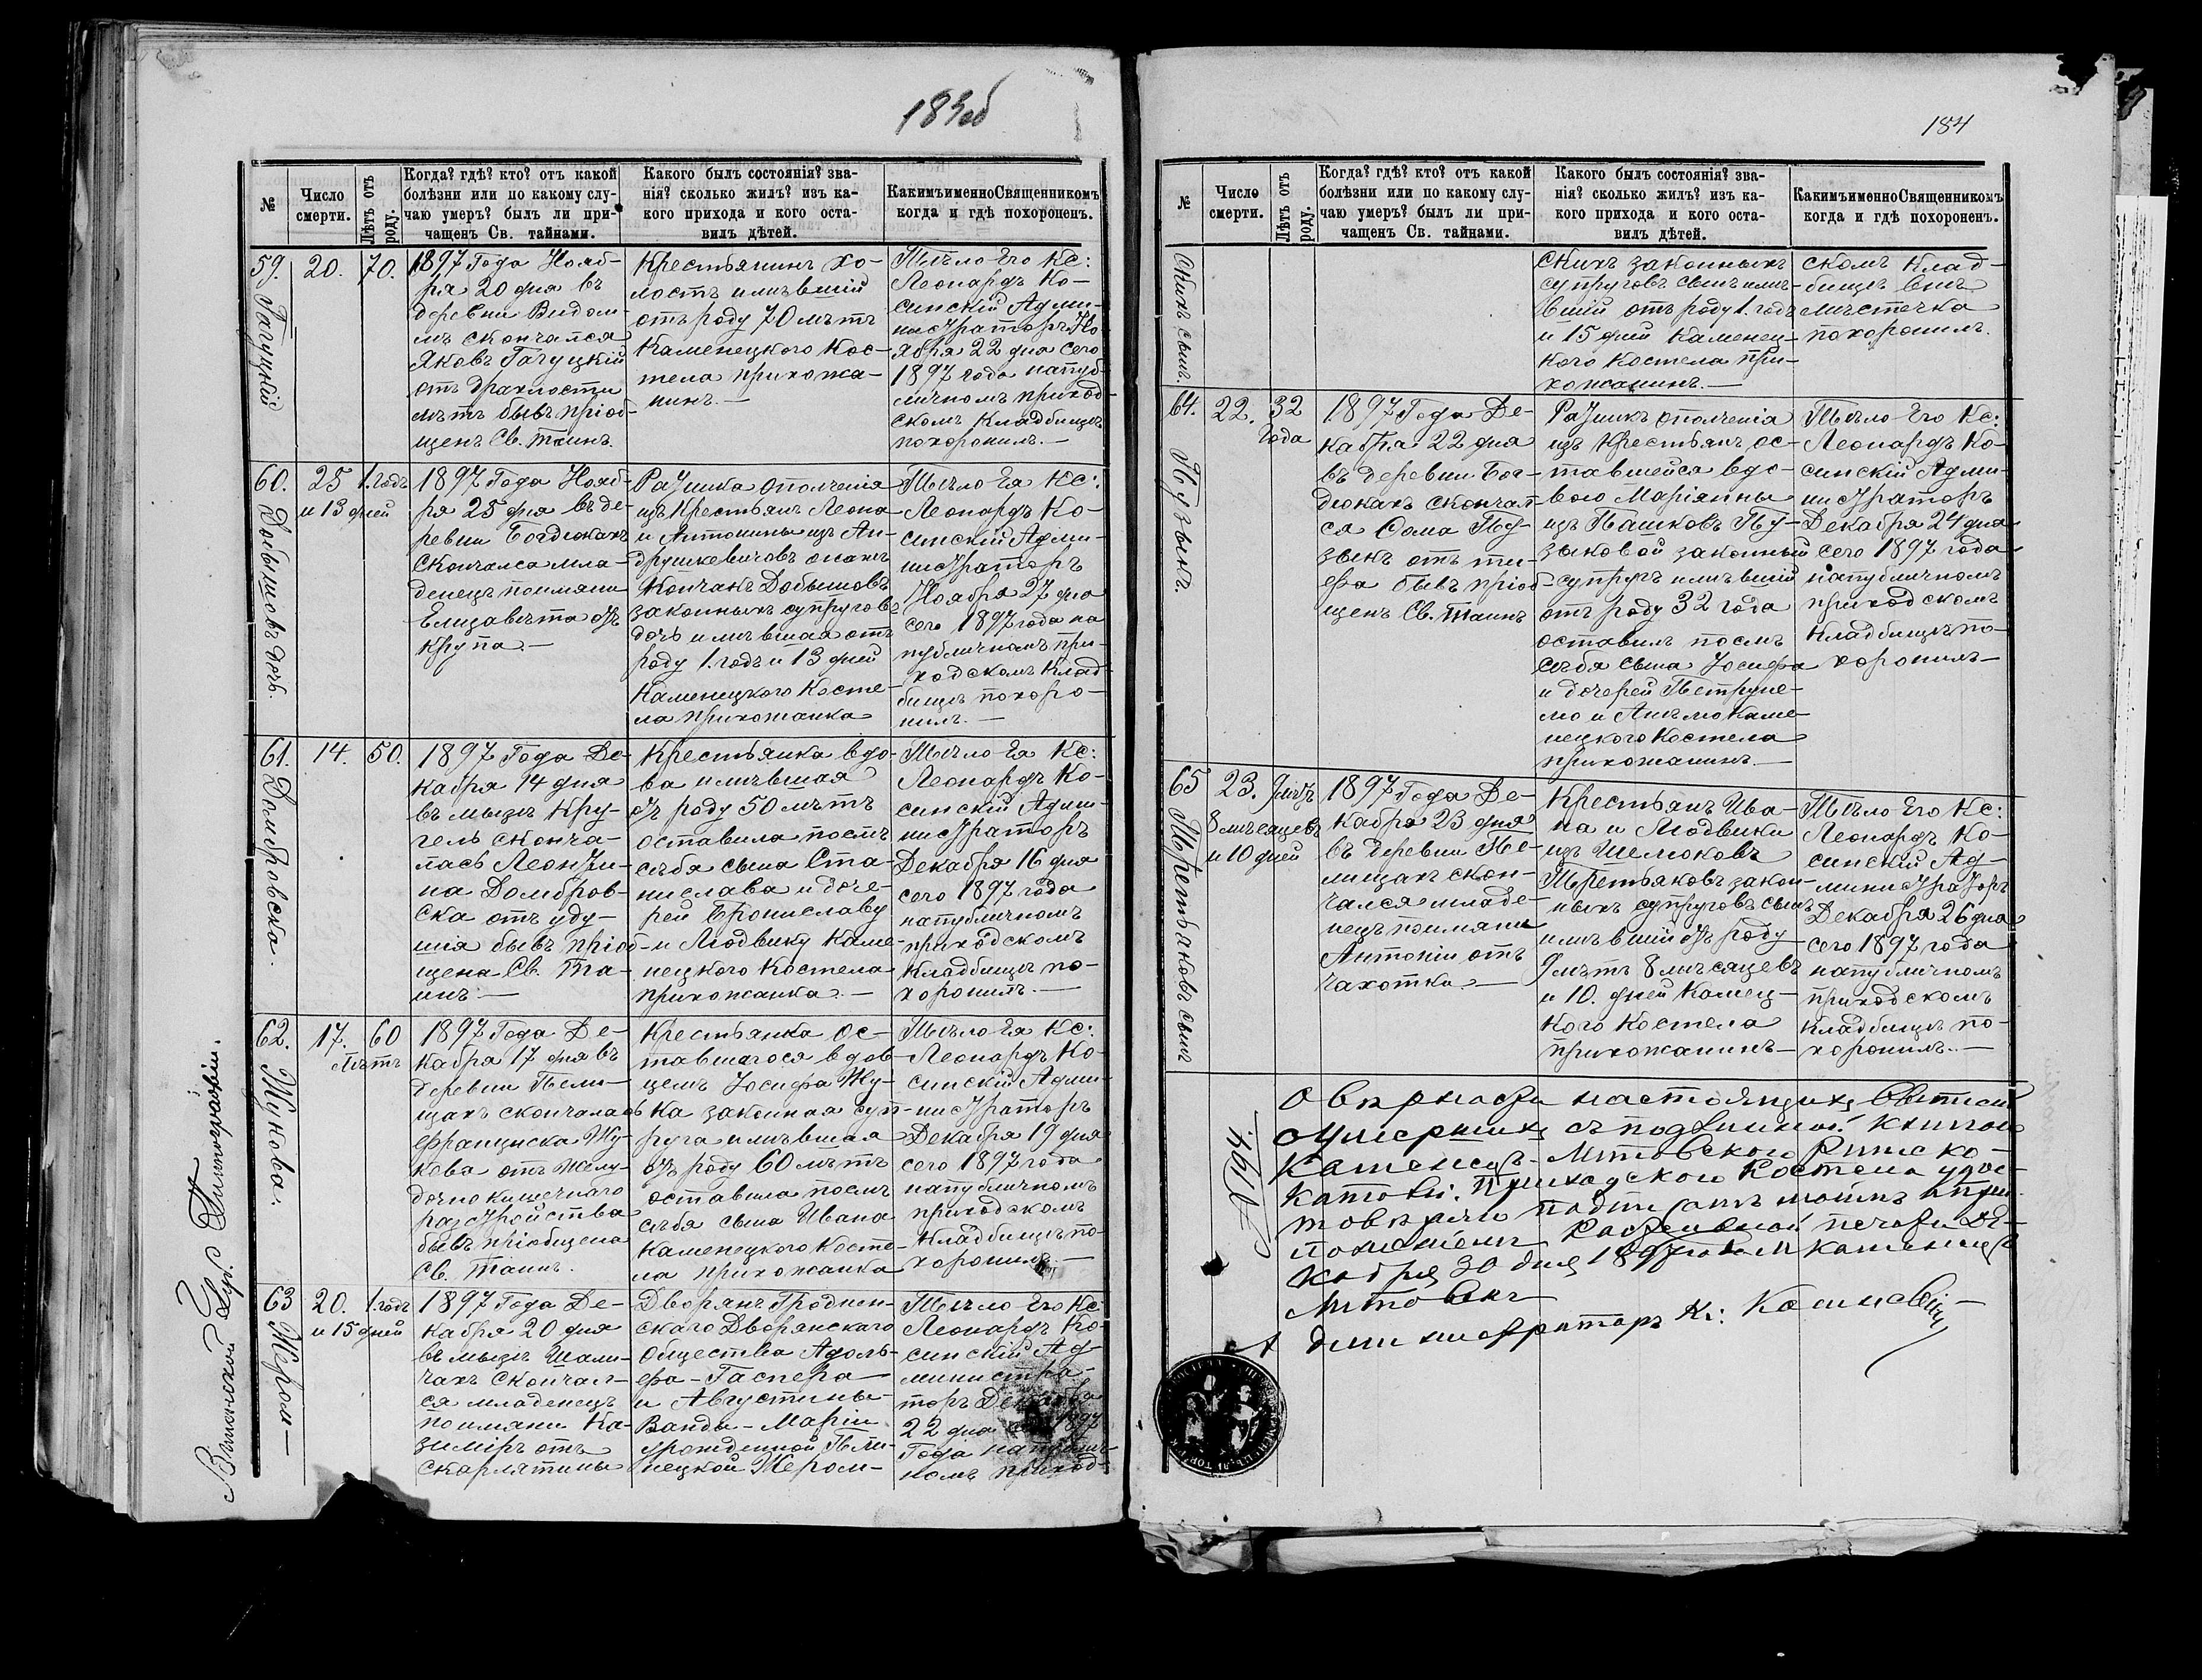 183об
№
Число
смерти.
Лѣтъ отъ
роду.
Когда? гдѣ? кто? отъ какой
болѣзни или по какому слу-
чаю умеръ? былъ ли при-
чащенъ Св. тайнами.
Какого былъ состоянія? зва-
нія? сколько жилъ? изъ ка-
кого прихода и кого оста-
вилъ дѣтей.
Какимъ именно Священникомъ
когда и гдѣ похороненъ.
59.
Гачуцкій
20.
70.
1897 Года Нояб-
ря 20 дня въ
деревни Видом-
лѣ скончался
Яковъ Гачуцкій
отъ драхлости
лѣтъ бывъ пріоб-
щенъ Св. Таинъ.
Крестьянинъ хо-
лостъ имѣвшій
отъ роду 70 лѣтъ
Каменецкого Кос-
тела прихожа-
нинъ.—
Тѣло Его Кс:
Леонардъ Ко-
синскій Адми-
нистраторъ Но-
ября 22 дня сего
1897 года на пуб-
личномъ приход-
скомъ Кладбищѣ
похоронилъ.—
60.
Добышовъ дочь.
25
1. годъ
и 13 дней
1897 Года Нояб-
ря 25 дня въ де-
ревни Богдюкахъ
скончался мла-
денецъ по имяни
Елизавѣта отъ
крупа.—
Ратника ополченія
изъ Крестьянъ Леона
и Антонины изъ Ан-
друшкевичовъ онахъ
Кончакъ Добышовъ
законныхъ супруговъ
дочь имѣвшая отъ
роду 1. годъ и 13 дней
Каменецкого Косте-
ла прихожанка
Тѣло Ея Кс:
Леонардъ Ко-
синскій Адми-
нистраторъ
Ноября 27 дня
сего 1897 года на
публичномъ при-
ходскомъ Клад-
бищѣ похоро-
нилъ.—
61.
Домбровска.
14.
50.
1897 Года Де-
кабря 14 дня
въ мызѣ Кру-
гель сконча-
лась Леонти-
на Домбров-
ска отъ уду-
шія бывъ пріоб-
щена Св. Та-
инъ.—
Крестьянка вдо-
ва имѣвшая
отъ роду 50 лѣтъ
оставила послѣ
себя сына Ста-
нислава и доче-
рей Брониславу
и Людвику Каме-
нецкого Костела
прихожанка.—
Тѣло Ея Кс:
Леонардъ Ко-
синскій Адми-
нистраторъ
Декабря 16 дня
сего 1897 года
на публичномъ
приходскомъ
Кладбищѣ по-
хоронилъ.—
62.
Жукова.
17.
60
лѣтъ
1897 Года Де-
кабря 17 дня въ
деревни Пели-
щахъ скончалась
Францишка Жу-
кова отъ желу-
дочно кишечнаго
разстройства
бывъ пріобщена
Св. Таинъ.
Крестьянка ос-
тавшагося вдов-
цемъ Іосифа Жу-
ка законная суп-
руга имѣвшая
отъ роду 60 лѣтъ
оставила послѣ
себя сына Ивана
Каменецкого Косте-
ла прихожанка
Тѣло Ея Кс:
Леонардъ Ко-
синскій Адми-
нистраторъ
Декабря 19 дня
сего 1897 года
на публичномъ
приходскомъ
Кладбищѣ по-
хоронилъ.—
63
Жером—
20.
1. годъ
и 15 дней
1897 Года Де-
кабря 20 дня
въ мызѣ Шали-
чахъ скончал-
ся младенецъ
по имяни Ка-
зиміръ отъ
скарлятины
Дворянъ Гроднен-
скаго Дворянскаго
Общества Адоль-
фа-Гаспера
и Августины-
Ванды-Маріи
урожденной Пѣли-
нецкой Жером-
Тѣло Его Кс:
Леонардъ Ко-
синскій Ад-
министра-
торъ Декабря
22 дня сего 1897
Года на публич-
номъ приход-
Виленской Губ. Типографіи.
184
№
Число
смерти.
Лѣтъ отъ
роду.
Когда? гдѣ? кто? отъ какой
болѣзни или по какому слу-
чаю умеръ? былъ ли при-
чащенъ Св. тайнами.
Какого былъ состоянія? зва-
нія? сколько жилъ? изъ ка-
кого прихода и кого оста-
вилъ дѣтей.
Какимъ именно Священникомъ
когда и гдѣ похороненъ.
скихъ сынъ.
скихъ законныхъ
супруговъ сынъ имѣ-
вшій отъ роду 1. годъ
и 15 дней Каменец-
кого Костела при-
хожанинъ.—
скомъ Клад-
бищѣ внѣ
мѣстечка
похоронилъ.
64.
Пузыкъ.
22.
32
года
1897 Года Де-
кабря 22 дня
въ деревни Бог-
дюкахъ скончал-
ся Фома Пу-
зыкъ отъ ти-
фа бывъ пріоб-
щенъ Св. Таинъ
Ратникъ ополченія
изъ Крестьянъ ос-
тавшейся вдо-
вою Маріянны
изъ Пашковъ Пу-
зыковой законный
супругъ имѣвшій
отъ роду 32 года
оставилъ послѣ
себя сына Іосифа
и дочерей Петруне-
лю и Анѣлю Каме-
нецкого Костела
прихожанинъ.—
Тѣло Его Кс:
Леонардъ Ко-
синскій Адми-
нистраторъ
Декабря 24 дня
сего 1897 года
на публичномъ
приходскомъ
Кладбищѣ по-
хоронилъ—
65
Третьяковъ сынъ
23.
9 лѣтъ
8 мѣсяцевъ
и 10 дней
1897 Года Де-
кабря 23 дня
въ деревни Пе-
лищахъ скон-
чался младе-
нецъ по имяни
Антоній отъ
чахотки.—
Крестьянъ Ива-
на и Людвики
изъ Шелюковъ
Третьяковъ закон-
ныхъ супруговъ сынъ
имѣвшій отъ роду
9 лѣтъ 8 мѣсяцевъ
и 10. дней Камец-
кого Костела
прихожанинъ—
Тѣло Его Кс:
Леонардъ Ко-
синскій Ад-
министраторъ
Декабря 26 дня
сего 1897 года
на публичномъ
приходскомъ
Кладбищѣ по-
хоронилъ.—
О вѣрности настоящихъ
умершихъ съ подлинной книгой
Каменецъ-Литовского Римско-
Католи. Приходского Костела удос-
товѣряю подписомъ моимъ и при-
ложеніемъ Костельной печати Де-
кабря 30 дня 1897 года М Каменецъ
Литовскъ
Администраторъ К: Косинскій